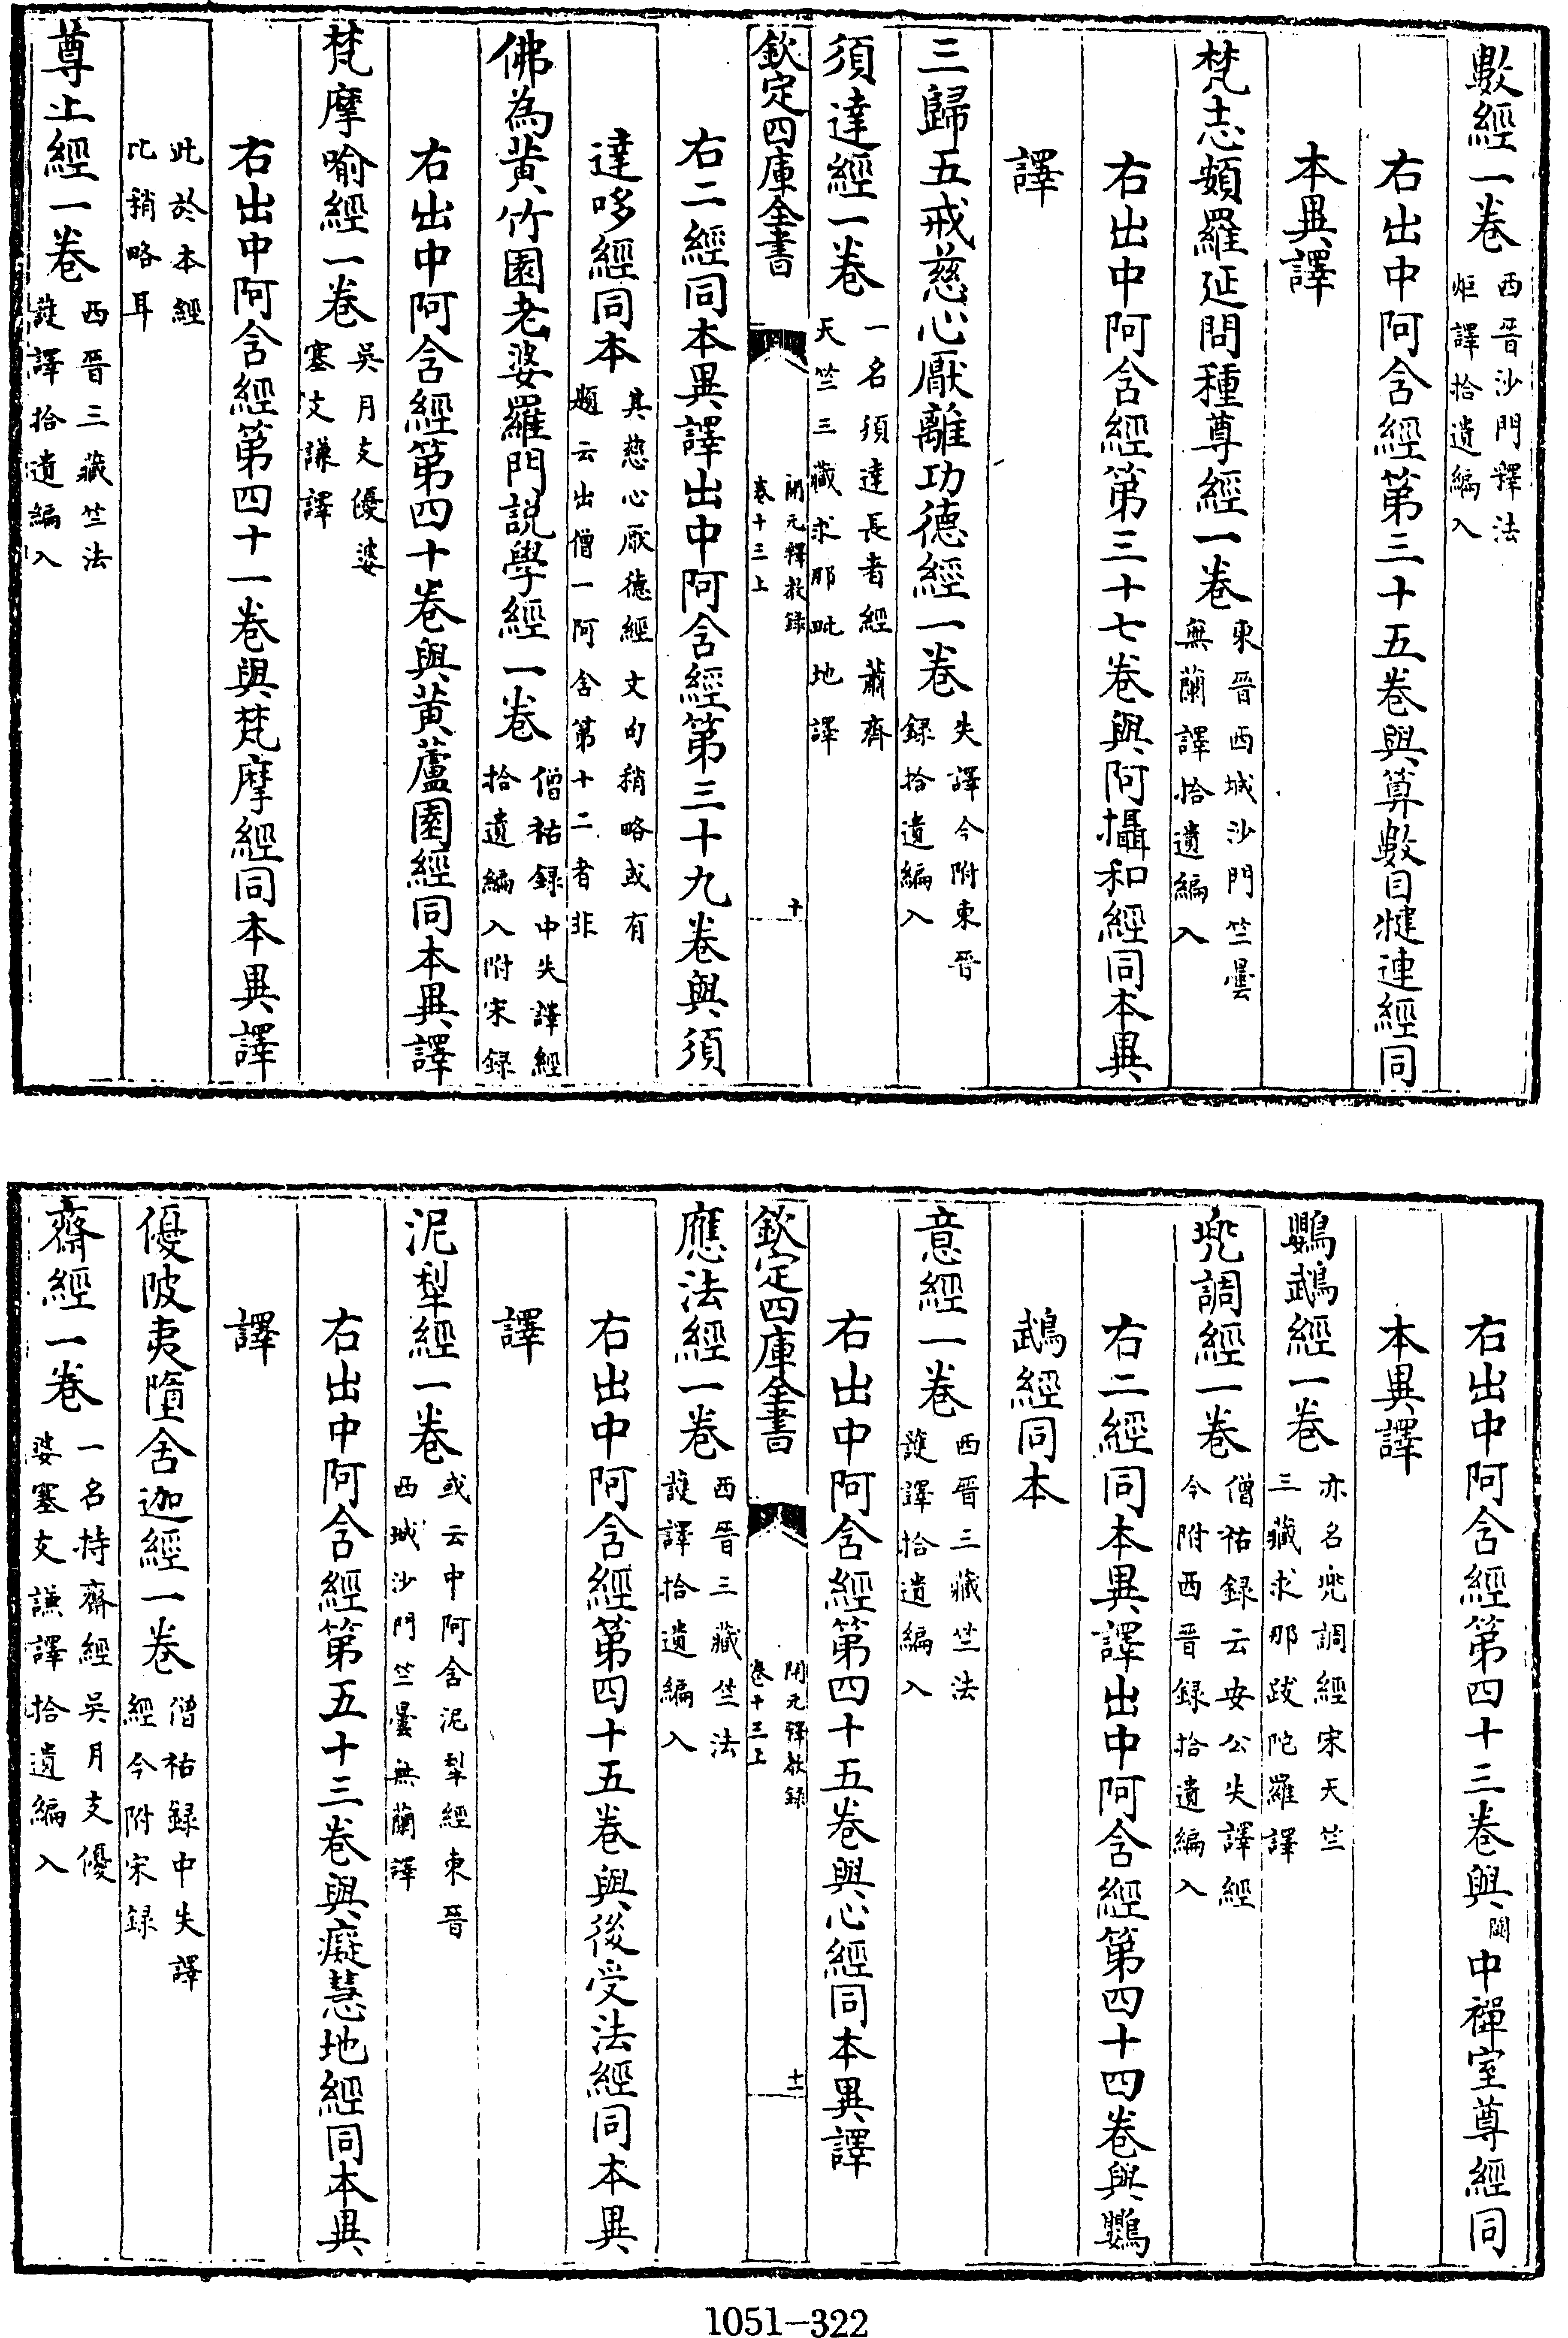 數經一卷西晉沙門釋法炬譯拾遺編入
右出中阿含經第三十五卷與算數目犍連經同
本異譯
梵志頞羅延問種尊經一卷東晉西域沙門竺曇無蘭譯拾遺編入
右出中阿含經第三十七卷與阿攝和經同本異
譯
三歸五戒慈心厭離功德經一卷失譯今附東晉録拾遺編入
須達經一卷一名須達長者經蕭齊天竺三藏求那毗地譯
欽定四庫全書 開元釋教録卷十三上 十
右二經同本異譯出中阿含經第三十九卷與須
達哆經同本其慈心厭德經文句稍略或有題云出僧一阿含第十二者非
佛為黄竹園老婆羅門説學經一卷僧祐録中失譯經拾遺編入附宋録
右出中阿含經第四十卷與黄蘆園經同本異譯
梵摩喻經一卷吳月支優婆塞支謙譯
右出中阿含經第四十一卷與梵摩經同本異譯
此於本經比稍略耳
尊上經一卷西晉三藏竺法護譯拾遺編入
右出中阿含經第四十三卷與闕中禪室尊經同
本異譯
鸚鵡經一卷亦名兜調經宋天竺三藏求那跋陀羅譯
兜調經一卷僧祐録云安公失譯經今附西晉録拾遺編入
右二經同本異譯出中阿含經第四十四卷與鸚
鵡經同本
意經一卷西晉三藏竺法護譯拾遺編入
右出中阿含經第四十五卷與心經同本異譯
欽定四庫全書 開元釋教録卷十三上 十一
應法經一卷西晉三藏竺法護譯拾遺編入
右出中阿含經第四十五卷與後受法經同本異
譯
泥犁經一卷或云中阿含泥犁經東晉西域沙門竺曇無蘭譯
右出中阿含經第五十三卷與癡慧地經同本異
譯
優陂夷墮舍迦經一卷僧祐録中失譯經今附宋録
齋經一卷一名持齋經吳月支優婆塞支謙譯拾遺編入
1051-322